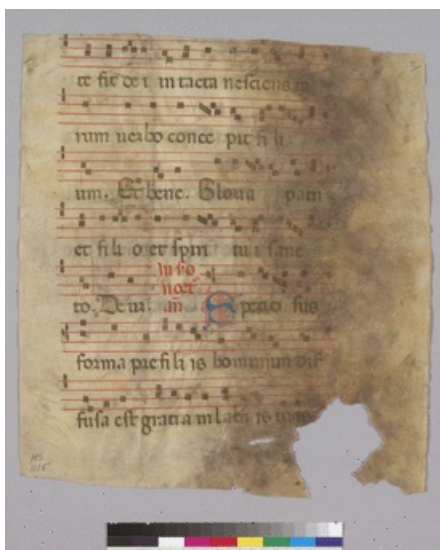 te fit de i in tacta nesciens
rum uerbo conce pit fi li
um. Et bene. Gloria patri
et fili o et spiri tu i sanc
to. De ui
in .iio.
noct
an Specio sus
forma pre fi li is hominum dif
fusa est gracia in labi is tu is
MS